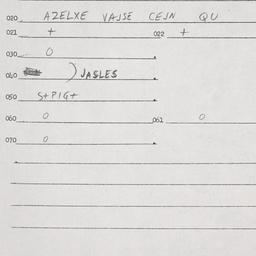 020 AZELXE VAJSE CEJN QU
021 + 022 +
030 0
040 ) JASLES
050 S+PIG+
060 0 061 0
070 0